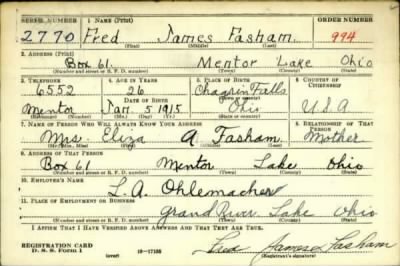 SERIAL NUMBER 1. NAME (Print) ORDER NUMBER
2770 Fred James Fasham 994
(First) (Middle) (Last)
2. ADDRESS (Print)
Box 61. Mentor Lake Ohio
(Number and street or R. F. D. number) (Town) (County) (State)
3. TELEPHONE 4. AGE IN YEARS 5. PLACE OF BIRTH 6. COUNTRY OF CITIZENSHIP
6552 26 Chagrin Falls
DATE OF BIRTH (Town or county)
Mentor Jan. 5 1915 Ohio U.S.A
(Exchange) (Number) (Mo.) (Day) (Yr.) (State or country)
7. NAME OF PERSON WHO WILL ALWAYS KNOW YOUR ADDRESS 8. RELATIONSHIP OF THAT PERSON
Mrs. Eliza A Fasham Mother
(Mr., Mrs., Miss) (First) (Middle) (Last)
9. ADDRESS OF THAT PERSON
Box 61 Mentor Lake Ohio
(Number and street or R. F. D. number) (Town) (County) (State)
10. EMPLOYER'S NAME
L. A. Ohlemacher
11. PLACE OF EMPLOYMENT OR BUSINESS
Grand River Lake Ohio
(Number and street or R. F. D. number) (Town) (County) (State)
I AFFIRM THAT I HAVE VERIFIED ABOVE ANSWERS AND THAT THEY ARE TRUE.
REGISTRATION CARD
D. S. S. Form 1 (over) 16—17105 Fred James Fasham
(Registrant's signature)